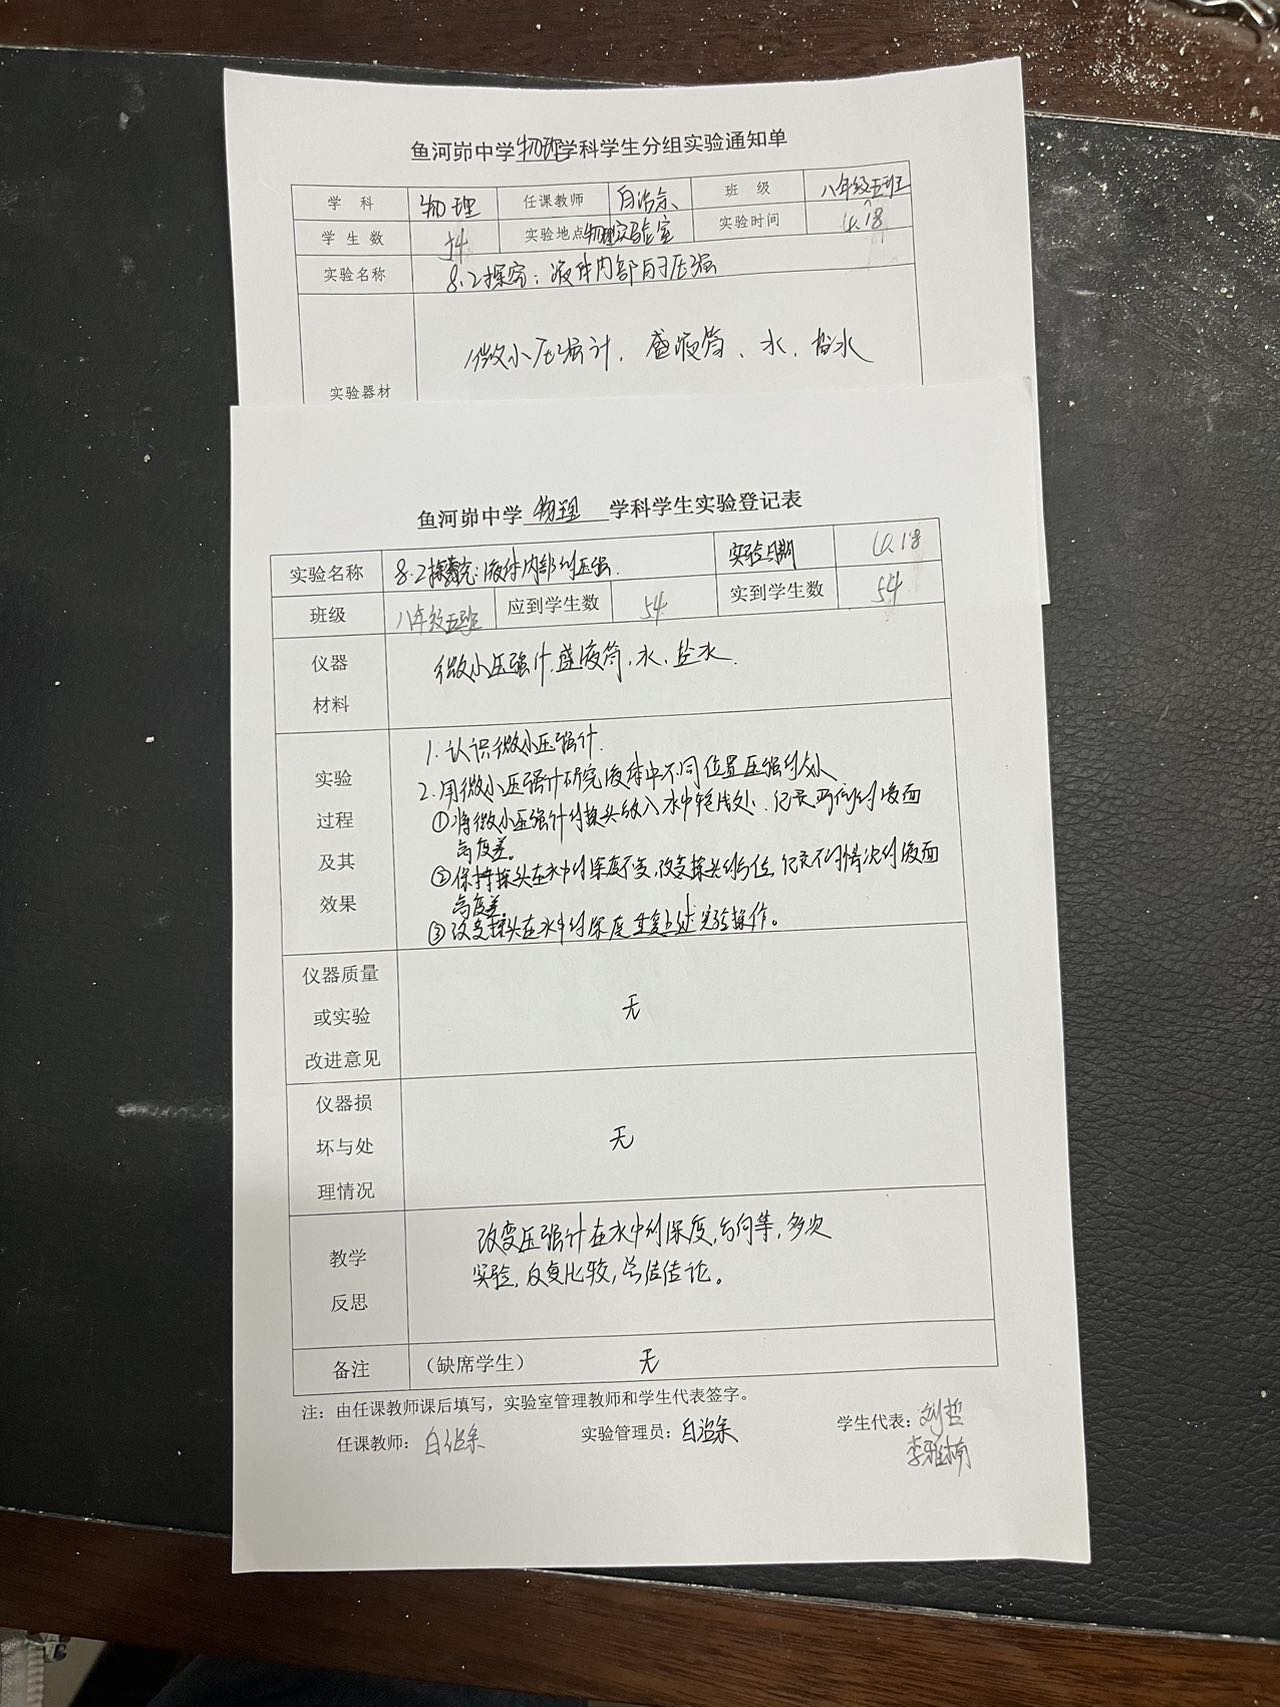 鱼河峁中学物理学科学生分组实验通知单
学 科 物理 任课教师 白治余 班 级 八年级五班
学 生 数 54 实验地点 物理实验室 实验时间 4.18
实验名称 8.2探究:液体内部的压强
实验器材 微小压强计、盛液筒、水、盐水
鱼河峁中学 物理 学科学生实验登记表
实验名称 8.2探究:液体内部的压强. 实验日期 4.18
班级 八年级五班 应到学生数 54 实到学生数 54
仪器 微小压强计、盛液筒、水、盐水.
材料
1.认识微小压强计.
实验 2.用微小压强计研究液体中不同位置压强的大小
过程 ①将微小压强计的探头放入水中较浅处、记录两侧的液面
高度差。
及其 ②保持探头在水中的深度不变,改变探头的方位,记录不同情况的液面
效果 高度差。
③改变探头在水中的深度重复上述实验操作。
仪器质量
或实验 无
改进意见
仪器损
坏与处 无
理情况
教学 改变压强计在水中的深度,方向等,多次
反思 实验,反复比较,总结结论。
备注 (缺席学生) 无
注:由任课教师课后填写,实验室管理教师和学生代表签字。
任课教师:白治余 实验管理员:白治余 学生代表:刘哲
李雅楠